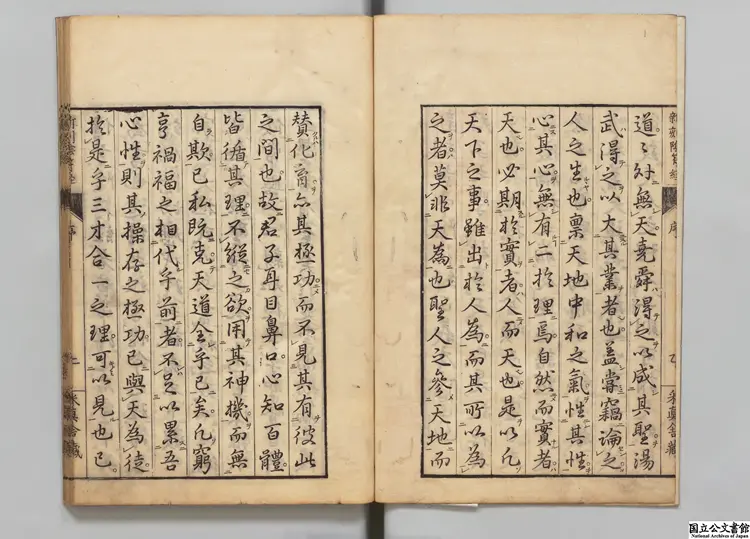 道之外無天堯舜得之以成其聖湯
武得之以大其業者也蓋嘗竊論之
人之生也稟天地中和之氣性其性
心其心無有二於理焉自然而實者
天也必期於實者人而天也是以凡
天下之事雖出於人為而其所以為
之者莫非天為也聖人之參天地而
贊化育亦其極功而不見其有彼此
之間也故君子耳目鼻口心知百體
皆循其理不縱之欲用其神機而無
自欺已私既克天道全乎已矣凡窮
亨禍福之相代乎前者不足以累吾
心性則其操存之極功已與天為徒
於是乎三才合一之理可以見也已
新刻陰騭經
序
采真舍藏
序
二
采真舍藏
国立公文書館
National Archives of Japan